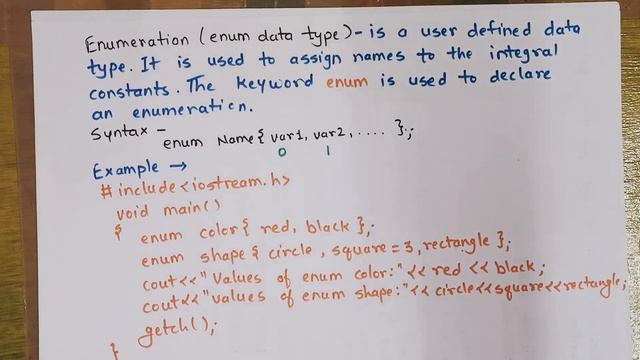 Enumeration (enum data type)- is a user defined data
type. It is used to assign names to the integral
constants. The keyword enum is used to declare
an enumeration.
Syntax -
enum Name{ var1, var2, .... };
0 1
Example →
#include<iostream.h>
void main()
{ enum color{ red, black };
enum shape { circle, square = 3, rectangle };
cout<<"Values of enum color:"<< red << black;
cout<<"values of enum shape:"<< circle<<square<<rectangle;
getch();
}